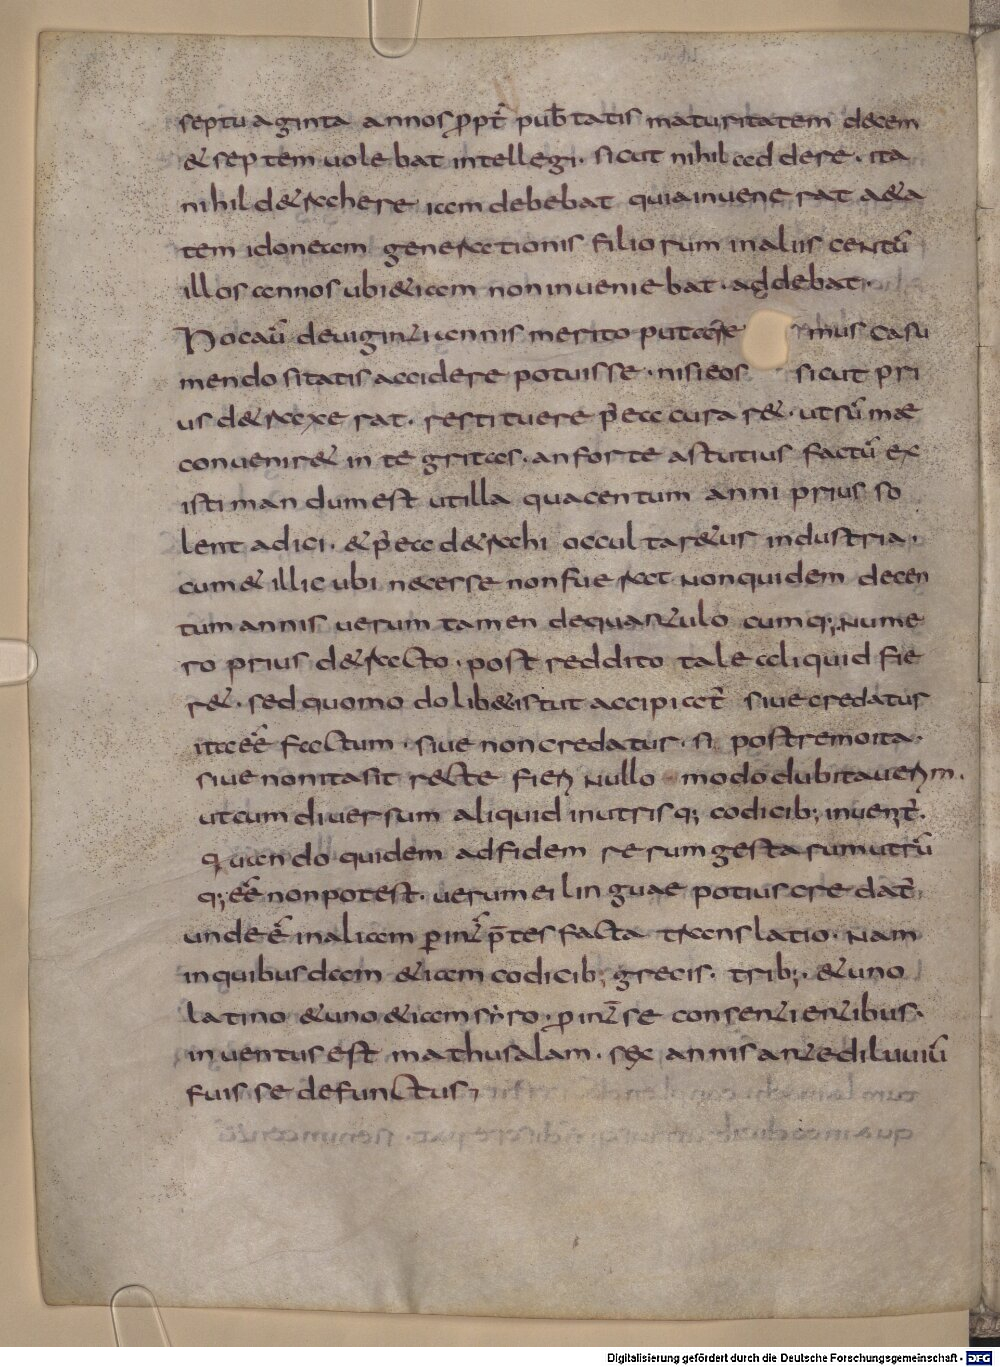 septuaginta annos ꝓpt̄ pub̄tatis maturitatem decem
& septem uolebat intellegi. sicut nihil addere. ita
nihil d&rahere iam debebat quia inuenerat a&a
tem idoneam generationis filiorum in aliis centū
illos annos ubi &iam non inueniebat. addebat.
Nocaū de uiginti annis merito putare mus casu
mendositatis accidere potuisse. nisi eos sicut pri
us d&raxerat. restituere p̄ea curar&. ut sūmae
conuenir& integritas. an forte astutius factū ex
istimandum est ut illa qua centum anni prius so
lent adici. & p̄ea d&rachi occultar&ur industria.
cum & illic ubi necesse non fuerat non quidem decen
tum annis uerum tamen de quantulo cumq; nume
ro prius d&racto. post reddito tale aliquid fie
r&. sed quomodolib& istut accipiat̄ siue credatur
ita eē factum. siue non credatur. si postremo ita.
siue non ita sit recte fieri nullo modo dubitauerim.
ut cum diuersum aliquid in utrisq; codicib; inuenit̄.
quando quidem ad fidem rerum gestarum utrū
q; eē non potest. uerum ei linguae potius credat̄.
unde ē in aliam ꝑ int̄p̄tes facta translatio. nam
in quibusdam &iam codicib; grecis. trib;. & uno
latino & uno &iam syro. ꝑ int̄ se consentientibus.
inuentus est mathusalam. sex annis ante diluuiū
fuisse defunctus;
Digitalisierung gefördert durch die Deutsche Forschungsgemeinschaft - DFG